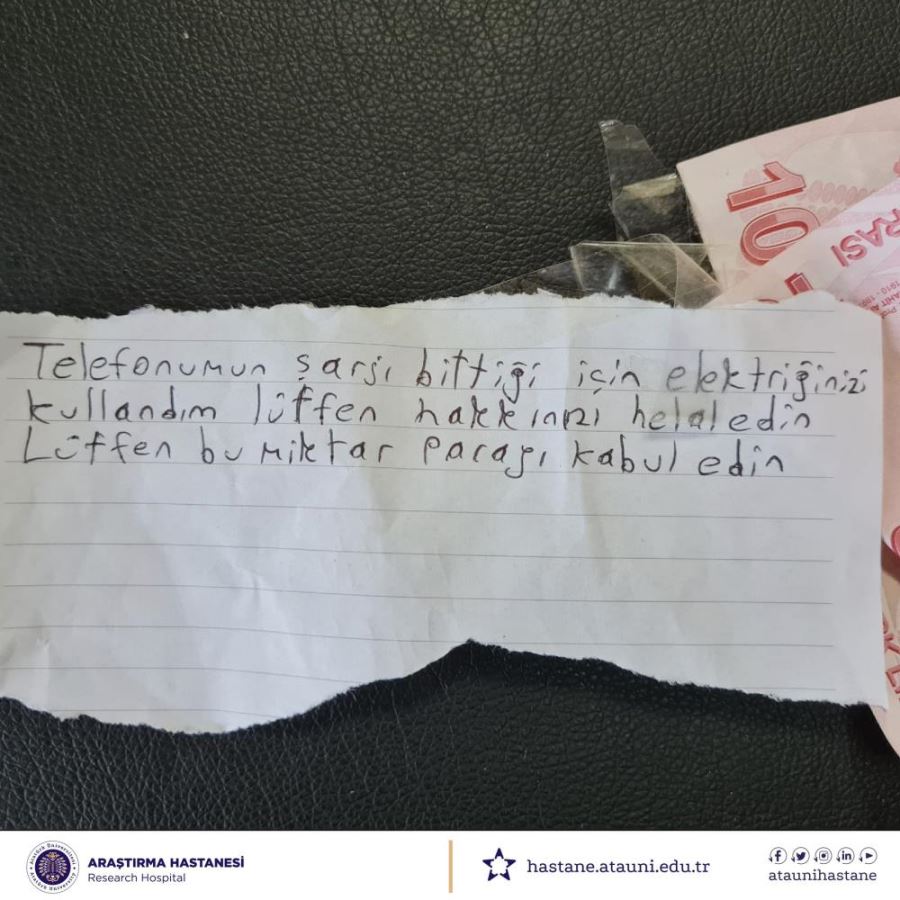 Telefonumun şarjı bittiği için elektriğinizi
kullandım lütfen hakkınızı helal edin
Lütfen bu miktar parayı kabul edin
10
RASI
ARAŞTIRMA HASTANESİ
Research Hospital
hastane.atauni.edu.tr
ataunihastane